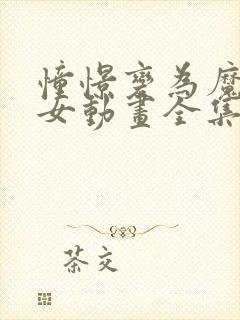 憧憬變為魔
女動畫全集
茶文